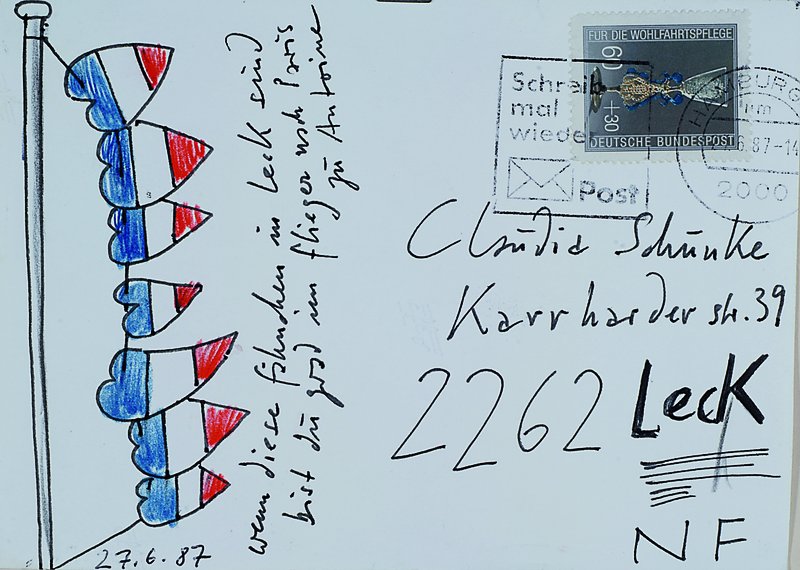 wenn diese fähnchen in Leck sind
bist du grad im flieger nach Paris
zu Antoine
27.6.87
FÜR DIE WOHLFAHRTSPFLEGE
60
+30
DEUTSCHE BUNDESPOST
Schreib
mal
wieder
Post
HAMBURG
.6.87-14
2000
Claudia Schünke
Karrharder str. 39
2262 Leck
NF